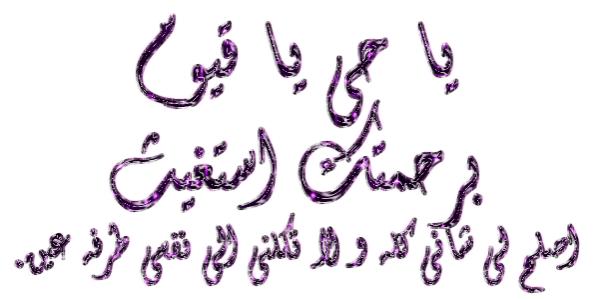 يا حي يا قيوم
برحمتك استغيث
اصلح لي شأني كله و لا تكلني الى نفسي طرفه عين